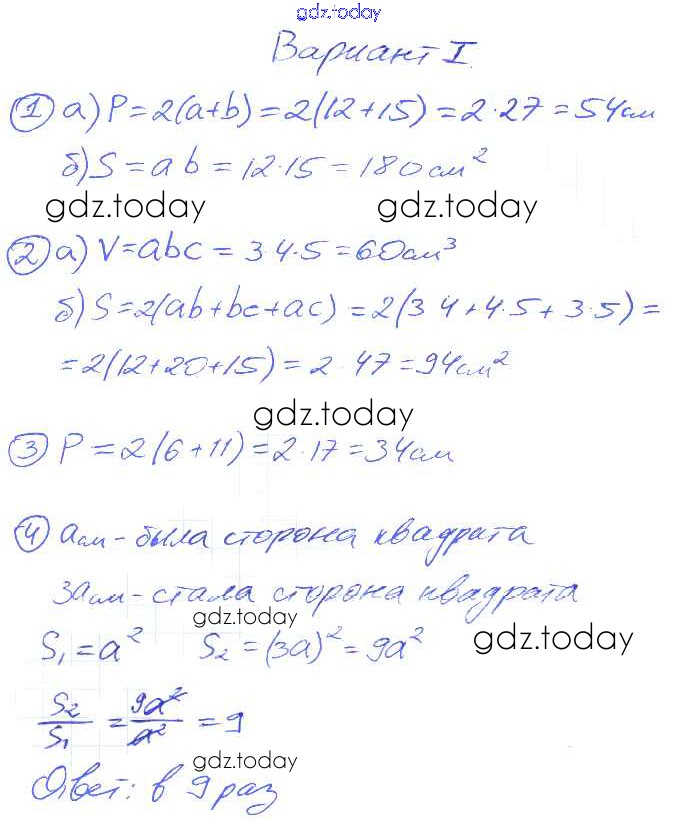 gdz.today
Вариант I.
① а) P=2(a+b)=2(12+15)=2·27=54см
б) S=ab=12·15=180см²
gdz.today gdz.today
② а) V=abc=3 4·5=60см³
б) S=2(ab+bc+ac)=2(3 4+4·5+3·5)=
=2(12+20+15)=2·47=94см²
gdz.today
③ P=2(6+11)=2·17=34см
④ a см - была сторона квадрата
3a см - стала сторона квадрата
gdz.today
S₁=a² S₂=(3a)²=9a² gdz.today
S₂/S₁=9a²/a²=9
gdz.today
Ответ: в 9 раз